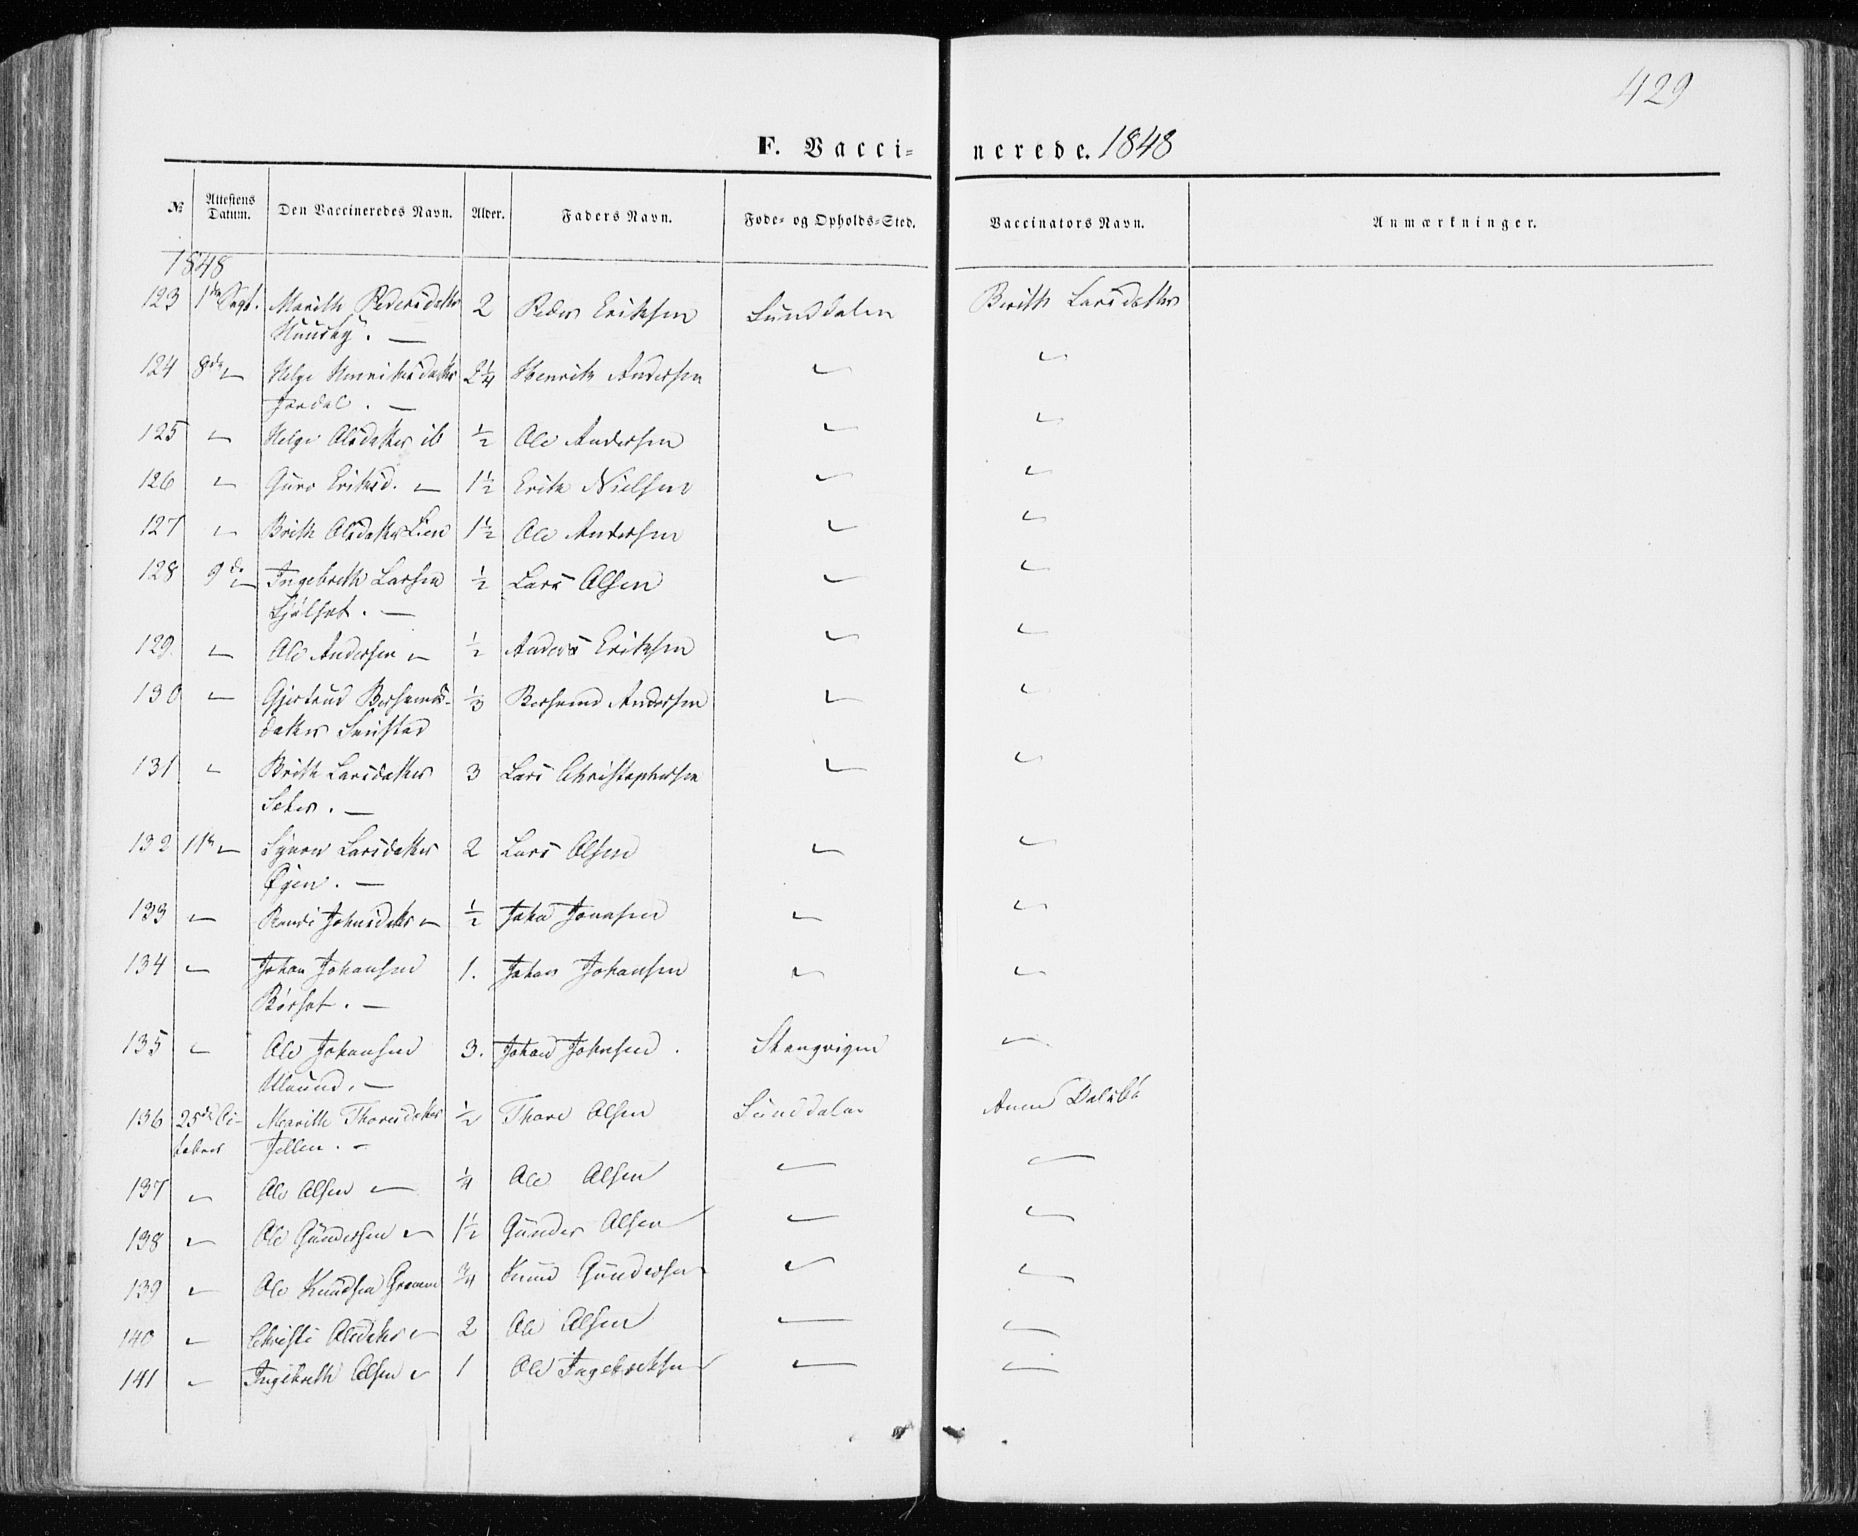 429
F. Vaccinerede. 1848
№ Attestens Datum. Den Vaccineredes Navn. Alder. Faders Navn. Føde- og Opholds-Sted. Vaccinators Navn. Anmærkninger.
1848
123 1ste Sept. Marith Pedersdatter 2 Peder Eriksen Sunddalen Berith Larsdatter
124 8de 〃 Helge Henriksdatter 2¼ Henrik Andersen 〃 〃
Jordal. —
125 〃 Helge Olsdatter ib ½ Ole Andersen 〃 〃
126 〃 Guro Eriksd. 〃 1½ Erik Nielsen 〃 〃
127 〃 Brith Olsdatter Lien 1½ Ole Andersen 〃 〃
128 9de 〃 Ingebreth Larsen ½ Lars Olsen 〃 〃
129. 〃 Ole Andersen 〃 ½ Anders Eriksen 〃 〃
130 〃 Gjertrud Bersvends- ⅓ Bersvend Andersen 〃 〃
datter
131 〃 Brith Larsdatter 3 Lars Christophersen 〃 〃
Seter. —
132 11te 〃 Synov Larsdatter 2 Lars Olsen 〃 〃
Øyen. —
133 〃 Randi Johnsdatter 〃 ½ John Jonasen 〃 〃
134 〃 Johan Johansen 1. Johan Johansen 〃 〃
Børset. —
135 〃 Ole Johansen 3. Johan Johnsen. Stangvigen 〃
Ulvund. —
136 25de Oc- Marith Thoresdatter ½ Thore Olsen Sunddalen Anne
tober
137 〃 Ole Olsen 〃 ¼ Ole Olsen 〃 〃
138 〃 Ole Gundersen 〃 1½ Gunder Olsen 〃 〃
139 〃 Ole Knudsen ¾ Knud Gundersen 〃 〃
140 〃 Christi Olsdatter 〃 2 Ole Olsen 〃 〃
141 〃 Ingebreth Olsen 〃 1 Ole Ingebrethsen 〃 〃